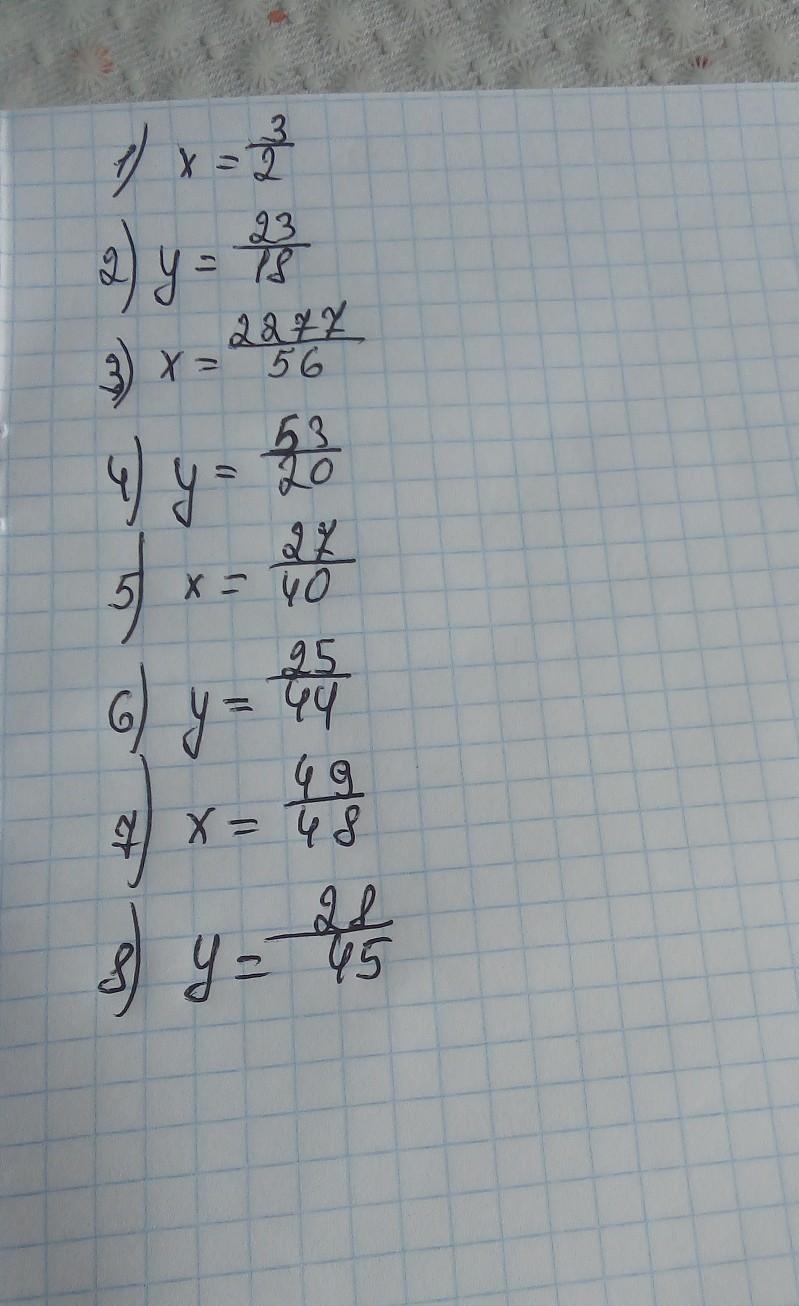 1) x = 3/2
2) y = 23/18
3) x = 2277/56
4) y = 53/20
5) x = 27/40
6) y = 25/44
7) x = 49/48
8) y = 28/45